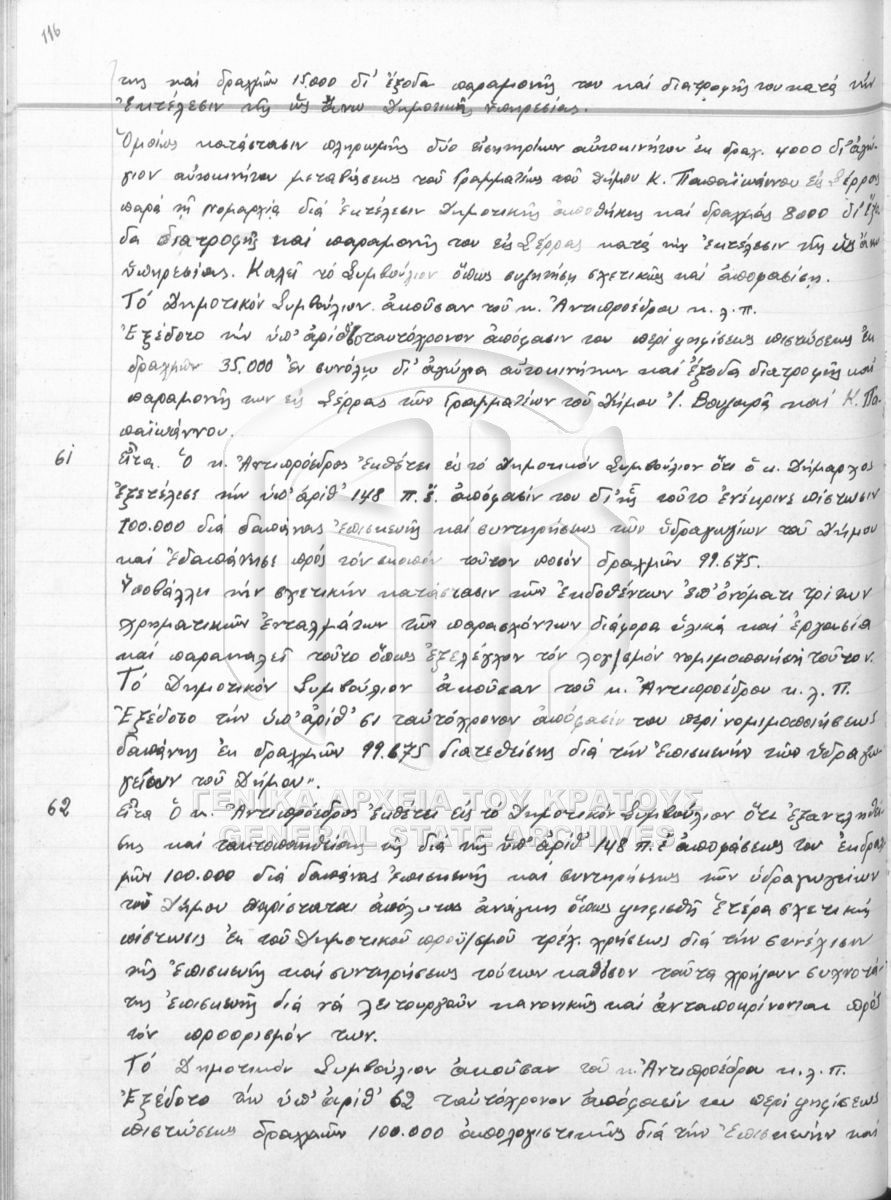 116
της καί δραχμῶν 15000 δι' ἔξοδα παραμονῆς του καί διατροφῆς του κατά τήν
ἐκτέλεσιν τῆς ὡς ἄνω Δημοτικῆς ὑπηρεσίας.
Ὁμοίως κατάστασιν πληρωμῆς δύο εἰσητηρίων αὐτοκινήτου ἐκ δραχ. 4000 δι' ἀγώ-
γιον αὐτοκινήτου μεταβάσεως τοῦ Γραμματέως τοῦ Δήμου Κ. Παπαϊωάννου εἰς Σέρρας
παρά τῇ Νομαρχίᾳ διά ἐκτέλεσιν Δημοτικῆς καί δραχμάς 8000 δι' ἔξο-
δα διατροφῆς καί παραμονῆς του εἰς Σέρρας κατά τήν ἐκτέλεσιν τῆς ὡς ἄνω
ὑπηρεσίας. Καλεῖ τό Συμβούλιον ὅπως συζητήσῃ σχετικῶς καί ἀποφασίσῃ.
Τό Δημοτικόν Συμβούλιον ἀκοῦσαν τοῦ κ. Ἀντιπροέδρου κ.λ.π.
Ἐξέδοτο τήν ὑπ' ἀριθ ταυτόχρονον ἀπόφασιν του περί ψηφίσεως πιστώσεως ἐκ
δραχμῶν 35.000 ἐν συνόλῳ δι' ἀγώγια αὐτοκινήτων καί ἔξοδα διατροφῆς καί
παραμονῆς των εἰς Σέρρας τῶν Γραμματέων τοῦ Δήμου Ἰ. Βουγιαρῆ καί Κ. Πα-
παϊωάννου.
61 Εἶτα. Ὁ κ. Ἀντιπρόεδρος ἐκθέτει εἰς τό Δημοτικόν Συμβούλιον ὅτι ὁ κ. Δήμαρχος
ἐξετέλεσε τήν ὑπ' ἀριθ' 148 π.ἔ. ἀπόφασίν του δι' ἧς τοῦτο ἐνέκρινε πίστωσιν
100.000 διά δαπάνας ἐπισκευῆς καί συντηρήσεως τῶν ὑδραγωγείων τοῦ Δήμου
καί ἐδαπάνησε πρός τόν σκοπόν τοῦτον ποσόν δραχμῶν 99.675.
Ὑποβάλλει τήν σχετικήν κατάστασιν τῶν ἐκδοθέντων ἐπ' ὀνόματι τρίτων
χρηματικῶν ἐνταλμάτων τῶν παρασχόντων διάφορα ὑλικά καί ἐργασία
καί παρακαλεῖ τοῦτο ὅπως ἐξελέγχον τόν λογ/σμόν νομιμοποιήσῃ τοῦτον.
Τό Δημοτικόν Συμβούλιον ἀκοῦσαν τοῦ κ. Ἀντιπροέδρου κ.λ.π.
Ἐξέδοτο τήν ὑπ' ἀριθ' 51 ταὐτόχρονον ἀπόφασίν του περί νομιμοποιήσεως
δαπάνης ἐκ δραχμῶν 99.675 διατεθείσης διά τήν ἐπισκευήν τῶν ὑδραγω-
γείων τοῦ Δήμου".
62 Εἶτα Ὁ κ. Ἀντιπρόεδρος ἐκθέτει εἰς τό Δημοτικόν Συμβούλιον ὅτι ἐξαντληθεί-
σης καί τακτοποιηθείσης τῆς διά τῆς ὑπ' ἀριθ' 148 π.ἔ ἀποφάσεως του ἐκ δραχ-
μῶν 100.000 διά δαπάνας ἐπισκευῆς καί συντηρήσεως τῶν ὑδραγωγείων
τοῦ Δήμου παρίσταται ἀπόλυτος ἀνάγκη ὅπως ψηφισθῇ ἑτέρα σχετική
πίστωσις ἐκ τοῦ Δημοτικοῦ προϋ/σμοῦ τρέχ. χρήσεως διά τήν συνέχισιν
τῆς ἐπισκευῆς καί συντηρήσεως τούτων καθ' ὅσον ταῦτα χρήζουν συχνοτά-
της ἐπισκευῆς διά νά λειτουργοῦν κανονικῶς καί ἀνταποκρίνονται πρός
τόν προορισμόν των.
Τό Δημοτικόν Συμβούλιον ἀκοῦσαν τοῦ κ. Ἀντιπροέδρου κ.λ.π.
Ἐξέδοτο τήν ὑπ' ἀριθ' 62 ταὐτόχρονον ἀπόφασίν του περί ψηφίσεως
πιστώσεως δραχμῶν 100.000 ἀπολογιστικῶς διά τήν ἐπισκευήν καί
ΓΕΝΙΚΑ ΑΡΧΕΙΑ ΤΟΥ ΚΡΑΤΟΥΣ
GENERAL STATE ARCHIVES